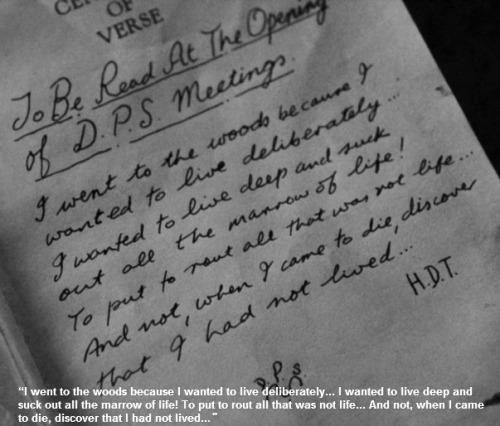 OF
VERSE
To Be Read At The Opening
of D.P.S. Meetings.
I went to the woods because I
wanted to live deliberately...
I wanted to live deep and suck
out all the marrow of life!
To put to rout all that was not life...
And not, when I came to die, discover
that I had not lived...
H.D.T.
D.P.S.
"I went to the woods because I wanted to live deliberately... I wanted to live deep and
suck out all the marrow of life! To put to rout all that was not life... And not, when I came
to die, discover that I had not lived..."